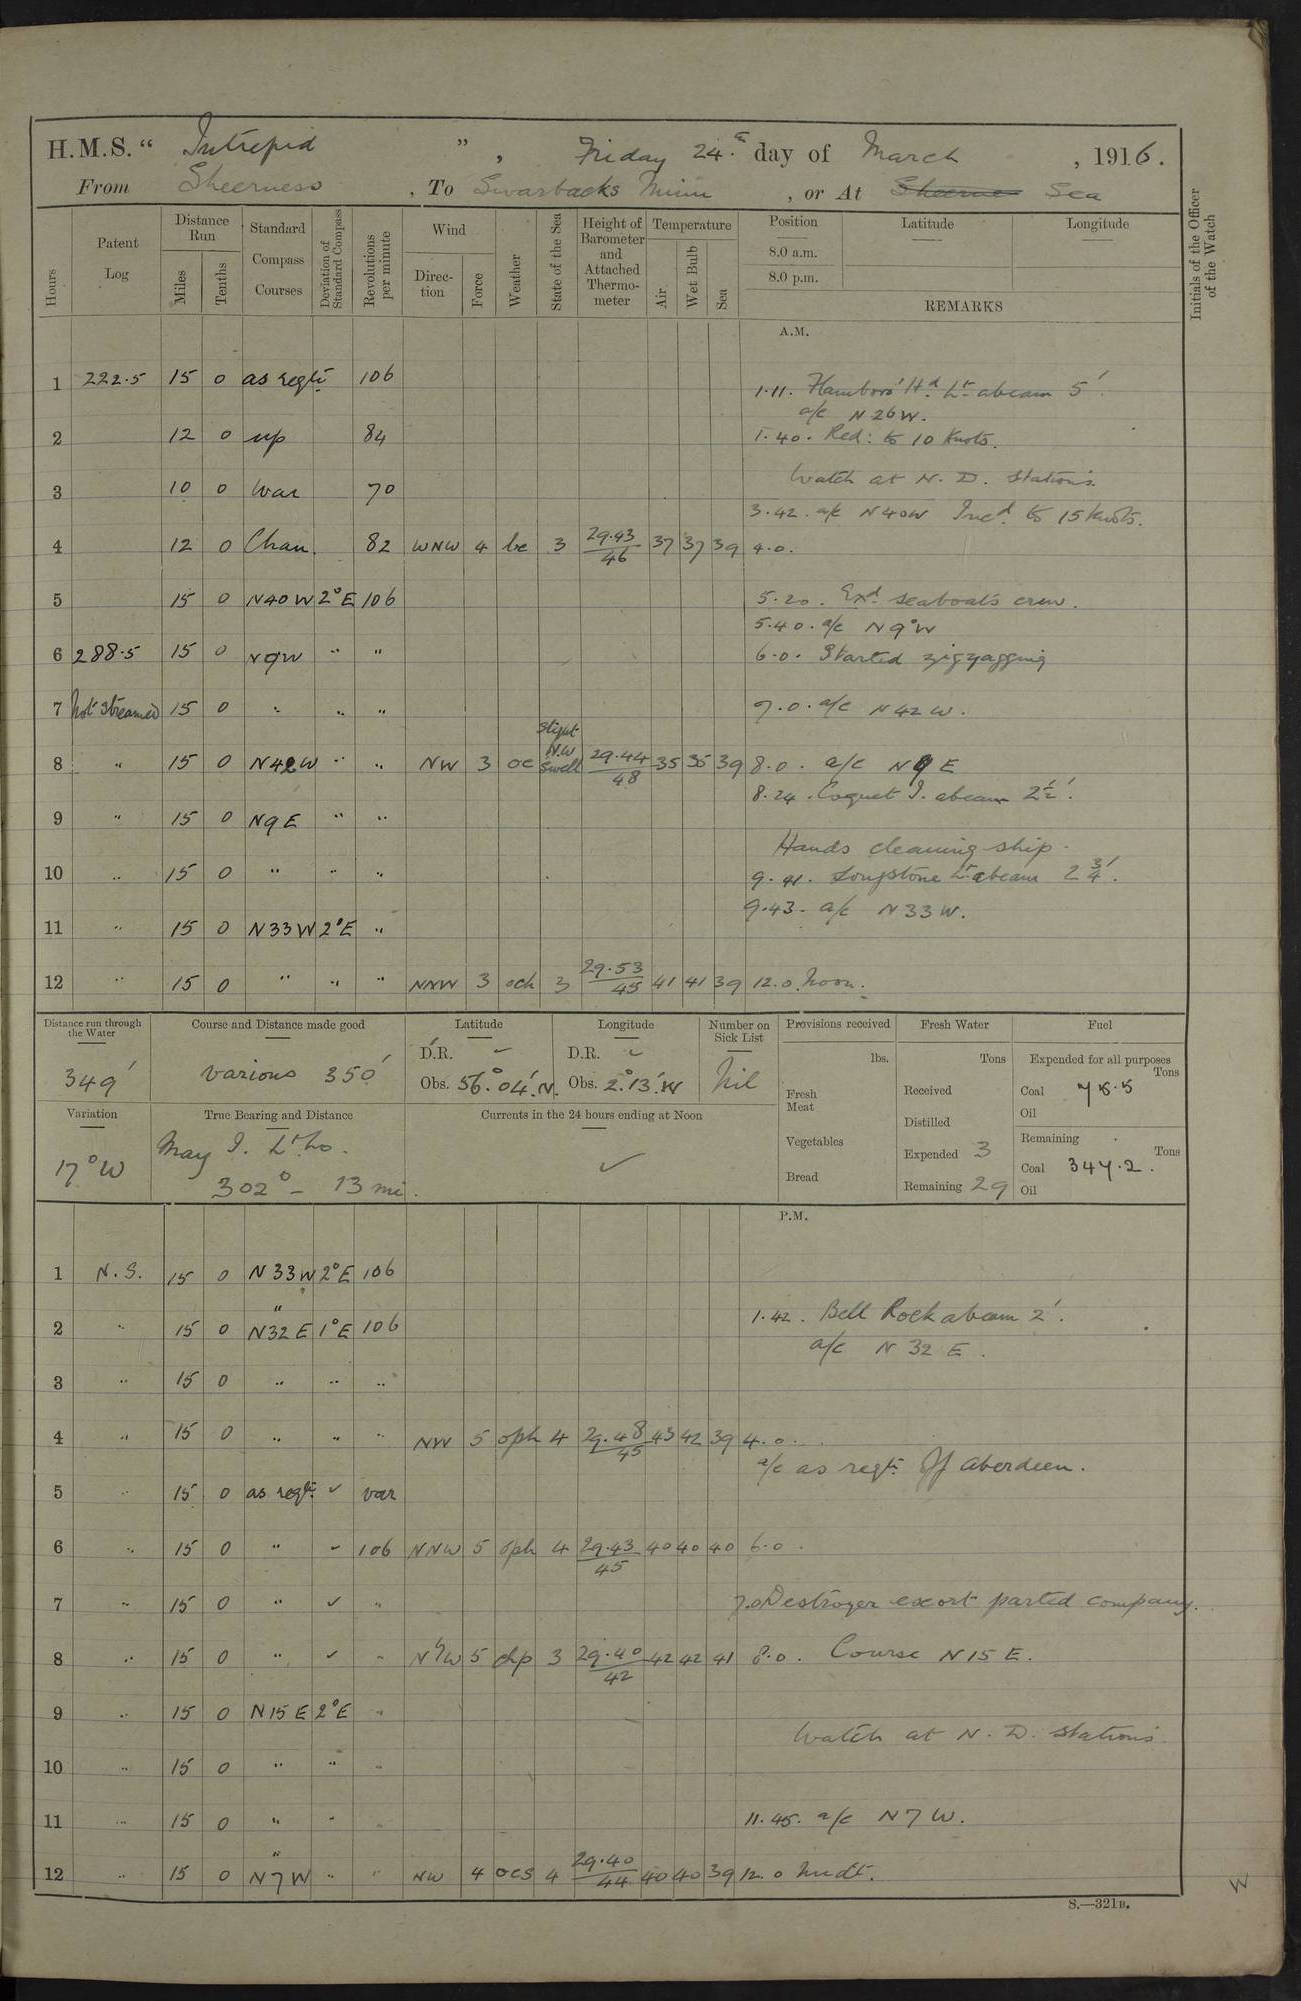 H.M.S. “ Intrepid ” , Friday 24.th day of March , 1916.
From Sheerness , To Swarbacks Minn , or At Sheerness Sea
Hours Patent Log Distance Run Miles Tenths Standard Compass Courses Deviation of Standard Compass Revolutions per minute Wind Direction Force Weather State of the Sea Height of Barometer and Attached Thermometer Temperature Air Wet Bulb Sea Position 8.0 a.m. 8.0 p.m. Latitude Longitude
REMARKS
Initials of the Officer of the Watch
A.M.
1 222.5 15 0 as reqte 106
1.11. Flamboro' Hd. Lt. abeam 5'.
a/c N 26 W.
2 12 0 up 84 1.40. Red: to 10 Knots.
Watch at N. D. Stations.
3 10 0 War 70
3.42. a/c N40W Incd. to 15 Knots.
4 12 0 Chan. 82 WNW 4 bc 3 29.43/46 37 37 39 4.0.
5 15 0 N40W 2°E 106 5.20. Exd. seaboats crew.
5.40. a/c N9°W
6 288.5 15 0 N9W " " 6.0. Started zigzagging
7 Not Streamed 15 0 " " " 7.0. a/c N42W.
8 " 15 0 N42W " " NW 3 oc Slight N.W Swell 29.44/48 35 35 39 8.0. a/c N9E
8.24. Coquet I. abeam 2½'.
9 " 15 0 N9E " "
Hands cleaning ship.
10 " 15 0 " " " 9.41. Longstone Lt. abeam 2¾'.
9.43. a/c N33W.
11 " 15 0 N33W 2°E "
12 " 15 0 " " " NNW 3 och 3 29.53/45 41 41 39 12.0. Noon.
Distance run through the Water Course and Distance made good Latitude Longitude Number on Sick List Provisions received Fresh Water Fuel
349' Various 350' D.R. ✓ D.R. ✓ Nil lbs. Tons Expended for all purposes Tons
Obs. 56°.04'.N. Obs. 2°.13'.W Fresh Meat Received Coal 75.5
Oil
Variation True Bearing and Distance Currents in the 24 hours ending at Noon Distilled Remaining Tons
17°W May I. Lt. Ho. ✓ Vegetables Expended 3 Coal 347.2.
302° – 13 mi. Bread Remaining 29 Oil
P.M.
1 N.S. 15 0 N33W 2°E 106
1.42. Bell Rock abeam 2'.
2 " 15 0 " N32E 1°E 106
a/c N 32 E.
3 " 15 0 " " "
4 " 15 0 " " " NW 5 oph 4 29.48/45 43 42 39 4.0.
a/c as reqte. Off Aberdeen.
5 " 15 0 as reqte. ✓ var
6 " 15 0 " ✓ 106 NNW 5 oph 4 29.43/45 40 40 40 6.0.
7 " 15 0 " ✓ " 7.0 Destroyer escort parted company.
8 " 15 0 " ✓ " 5 chp 3 29.40/42 42 42 41 8.0. Course N15E.
9 " 15 0 N15E 2°E "
Watch at N. D. Stations
10 " 15 0 " " "
11 " 15 0 " " " 11.45. a/c N7W.
12 " 15 0 " N7W " " NW 4 ocs 4 29.40/44 40 40 39 12.0 Midt.
S.—321B.
W